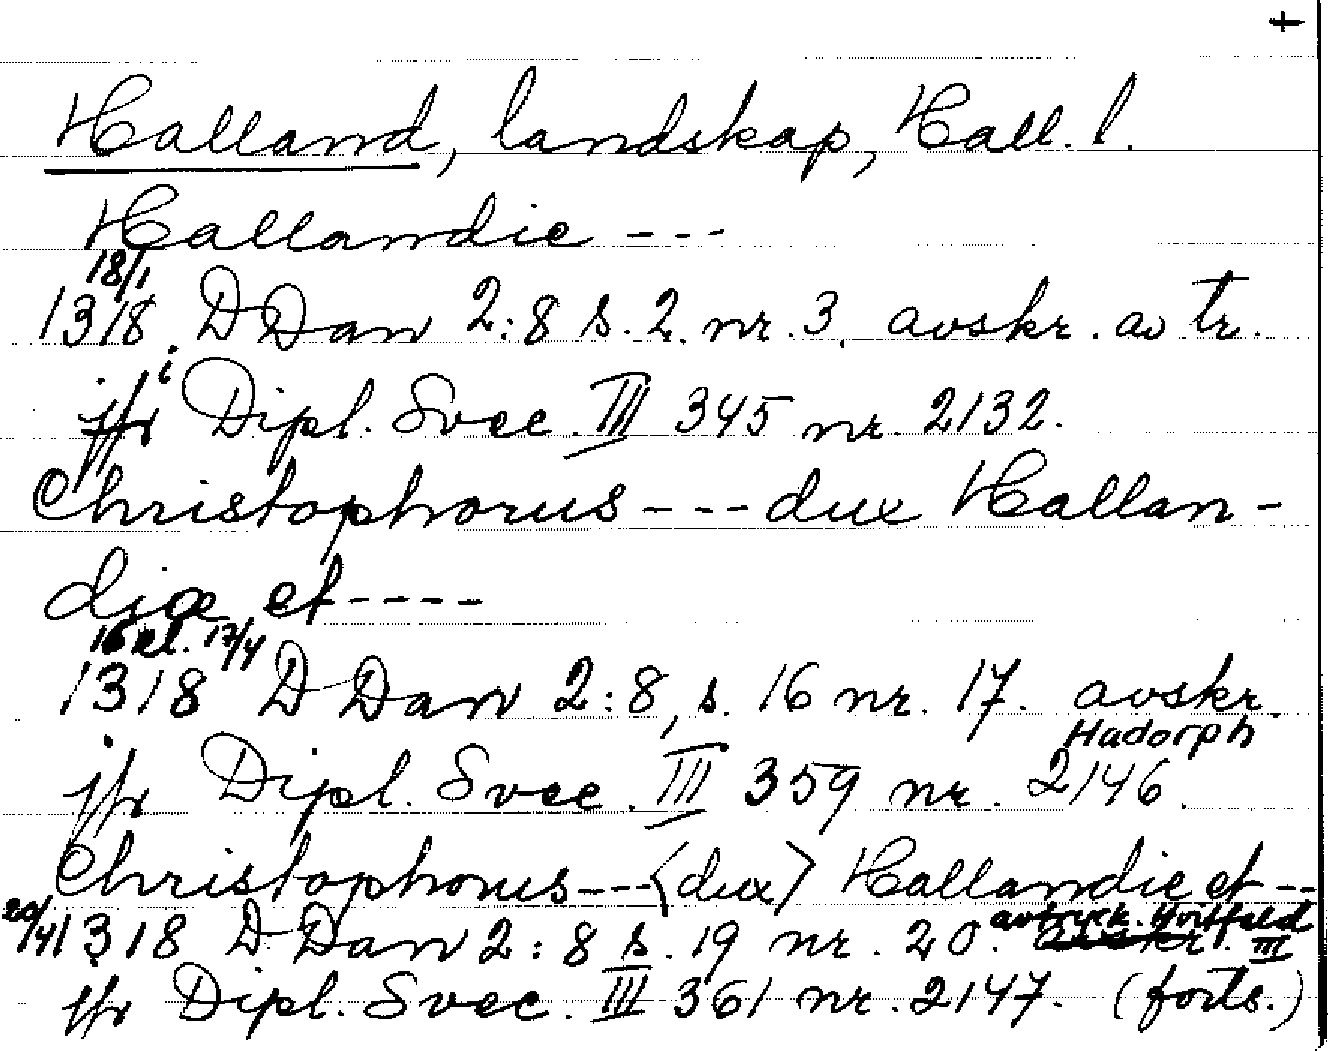 Halland, landskap, Hall. l.
Hallandie ---
18/1
1318. D Dan 2:8 s. 2. nr. 3. avskr. av tr.
i Dipl. Svec. III 345 nr. 2132.
Christophorus --- dux Hallan-
diæ et ----
16 kl. 17/4
1318 D Dan 2:8, s. 16 nr. 17. avskr.
Hadorph
jfr Dipl. Svec. III 359 nr. 2146.
Christophorus --- <dux> Hallandie et --
20/4 1318 D Dan 2:8 s. 19 nr. 20. avtryck. Hvitfeld III
jfr Dipl. Svec. III 361 nr. 2147. (forts.)